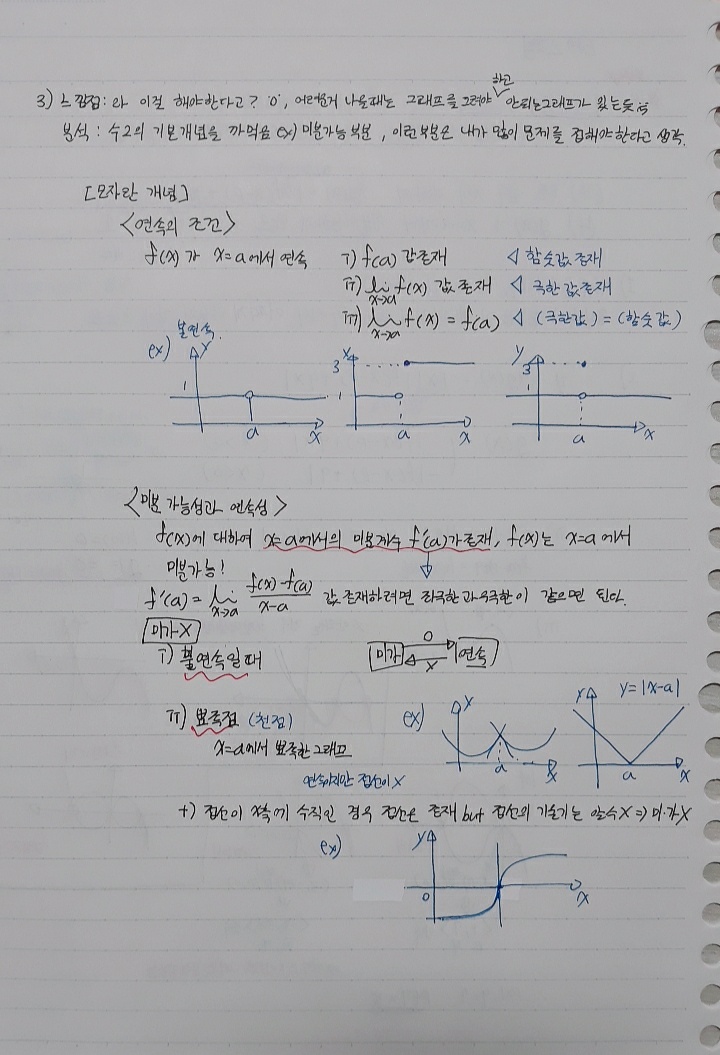 3) 느낀점 : 와 이걸 해야한다고? 'o', 어려운게 나올때는 그래프를 그려야 하고 안되는그래프가 있는듯
분석 : 수2의 기본개념을 까먹음 ex) 미분가능 부분, 이런부분은 내가 많이 문제를 접해야한다고 생각.
[모자란 개념]
<연속의 조건>
f(x)가 x=a에서 연속 i) f(a) 값존재 ◁ 함숫값 존재
ii) lim x→a f(x) 값 존재 ◁ 극한값존재
iii) lim x→a f(x) = f(a) ◁ (극한값) = (함숫값)
불연속.
ex) y 1 a x y 3 1 a x y 3 1 a x
<미분 가능성과 연속성>
f(x)에 대하여 x=a에서의 미분계수 f'(a)가 존재, f(x)는 x=a에서
미분가능!
f'(a) = lim x→a f(x)-f(a) / x-a 값 존재하려면 좌극한과 우극한이 같으면 된다.
미가X
i) 불연속일때 미가 O X 연속
ii) 뾰족점 (첨점) ex) y a x y y=|x-a| a x
x=a에서 뾰족한 그래프
연속하지만 접선이 X
+) 접선이 x축에 수직인 경우 접선은 존재 but 접선의 기울기는 존수X ⇒ 미·가X
ex) y 0 x